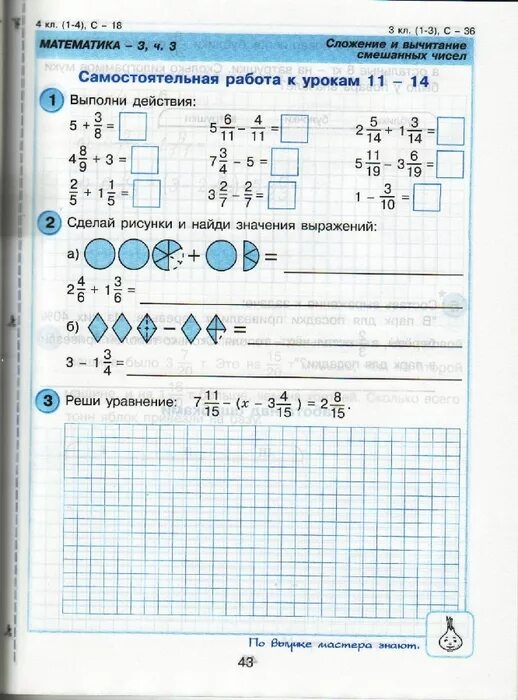 4 кл. (1-4), С - 18
3 кл. (1-3), С - 36
МАТЕМАТИКА - 3, ч. 3
Сложение и вычитание
смешанных чисел
Самостоятельная работа к урокам 11 - 14
1 Выполни действия:
5 + 3/8 =
5 6/11 - 4/11 =
2 5/14 + 1 3/14 =
4 8/9 + 3 =
7 3/4 - 5 =
5 11/19 - 3 6/19 =
2/5 + 1 1/5 =
3 2/7 - 2/7 =
1 - 3/10 =
2 Сделай рисунки и найди значения выражений:
а) + =
2 4/6 + 1 3/6 =
б) - =
3 - 1 3/4 =
3 Реши уравнение: 7 11/15 - (x - 3 4/15) = 2 8/15.
По выучке мастера знают.
43